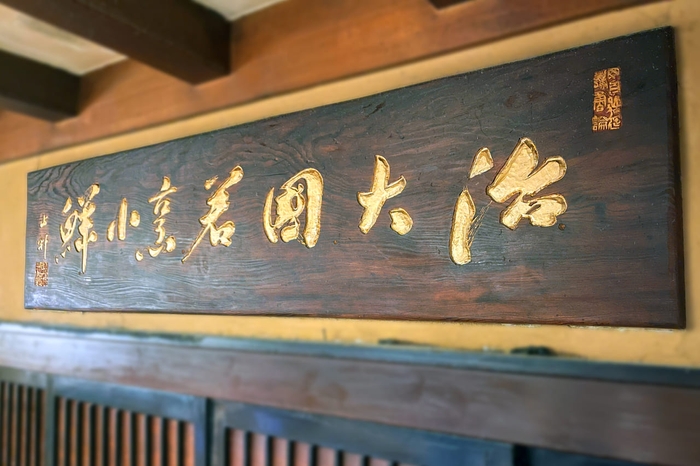 治大国若烹小鮮